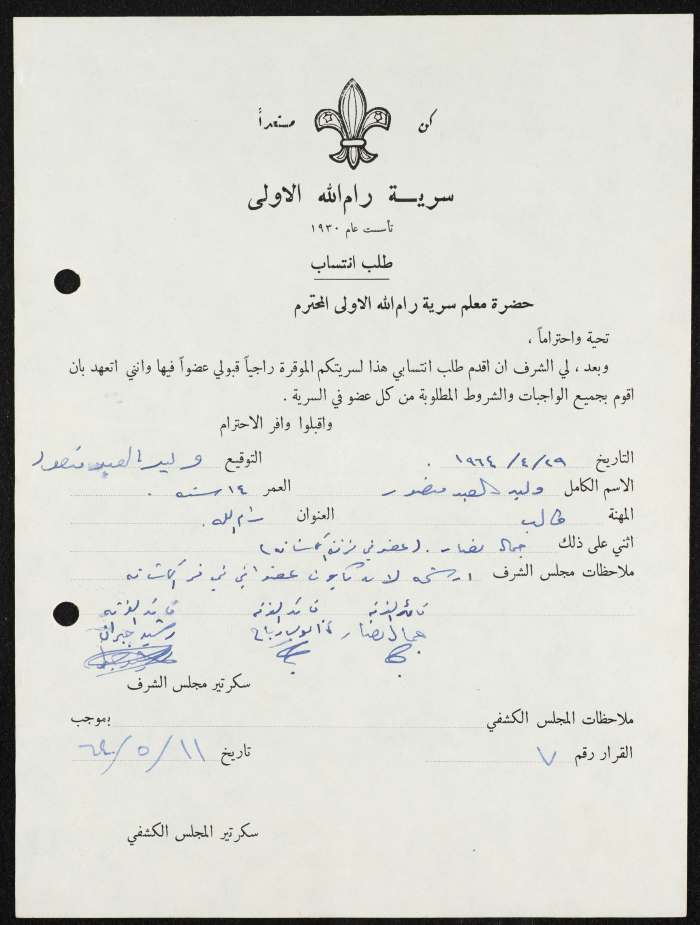 كن مستعداً
سرية رام الله الاولى
تأسست عام ١٩٣٠
طلب انتساب
حضرة معلم سرية رام الله الاولى المحترم
تحية واحتراماً ،
وبعد ، لي الشرف ان اقدم طلب انتسابي هذا لسريتكم الموقرة راجياً قبولي عضواً فيها وانني اتعهد بان
اقوم بجميع الواجبات والشروط المطلوبة من كل عضو في السرية .
واقبلوا وافر الاحترام
التاريخ ٢٩/٤/١٩٦٤ . التوقيع وليد العبد منصور
الاسم الكامل وليد العبد منصور العمر ١٤ سنه .
المهنة طالب العنوان رام الله .
اثني على ذلك جمال نصار . (عضو في فرقة الكشافه)
ملاحظات مجلس الشرف ارشحه لان يكون عضوا في الكشافه
قائد الفرقه قائد الفرقه قائد الفرقه
جمال نصار رباح رشيد جبران
سكرتير مجلس الشرف
ملاحظات المجلس الكشفي بموجب
القرار رقم ٧ تاريخ ١١/٥/٦٤
سكرتير المجلس الكشفي